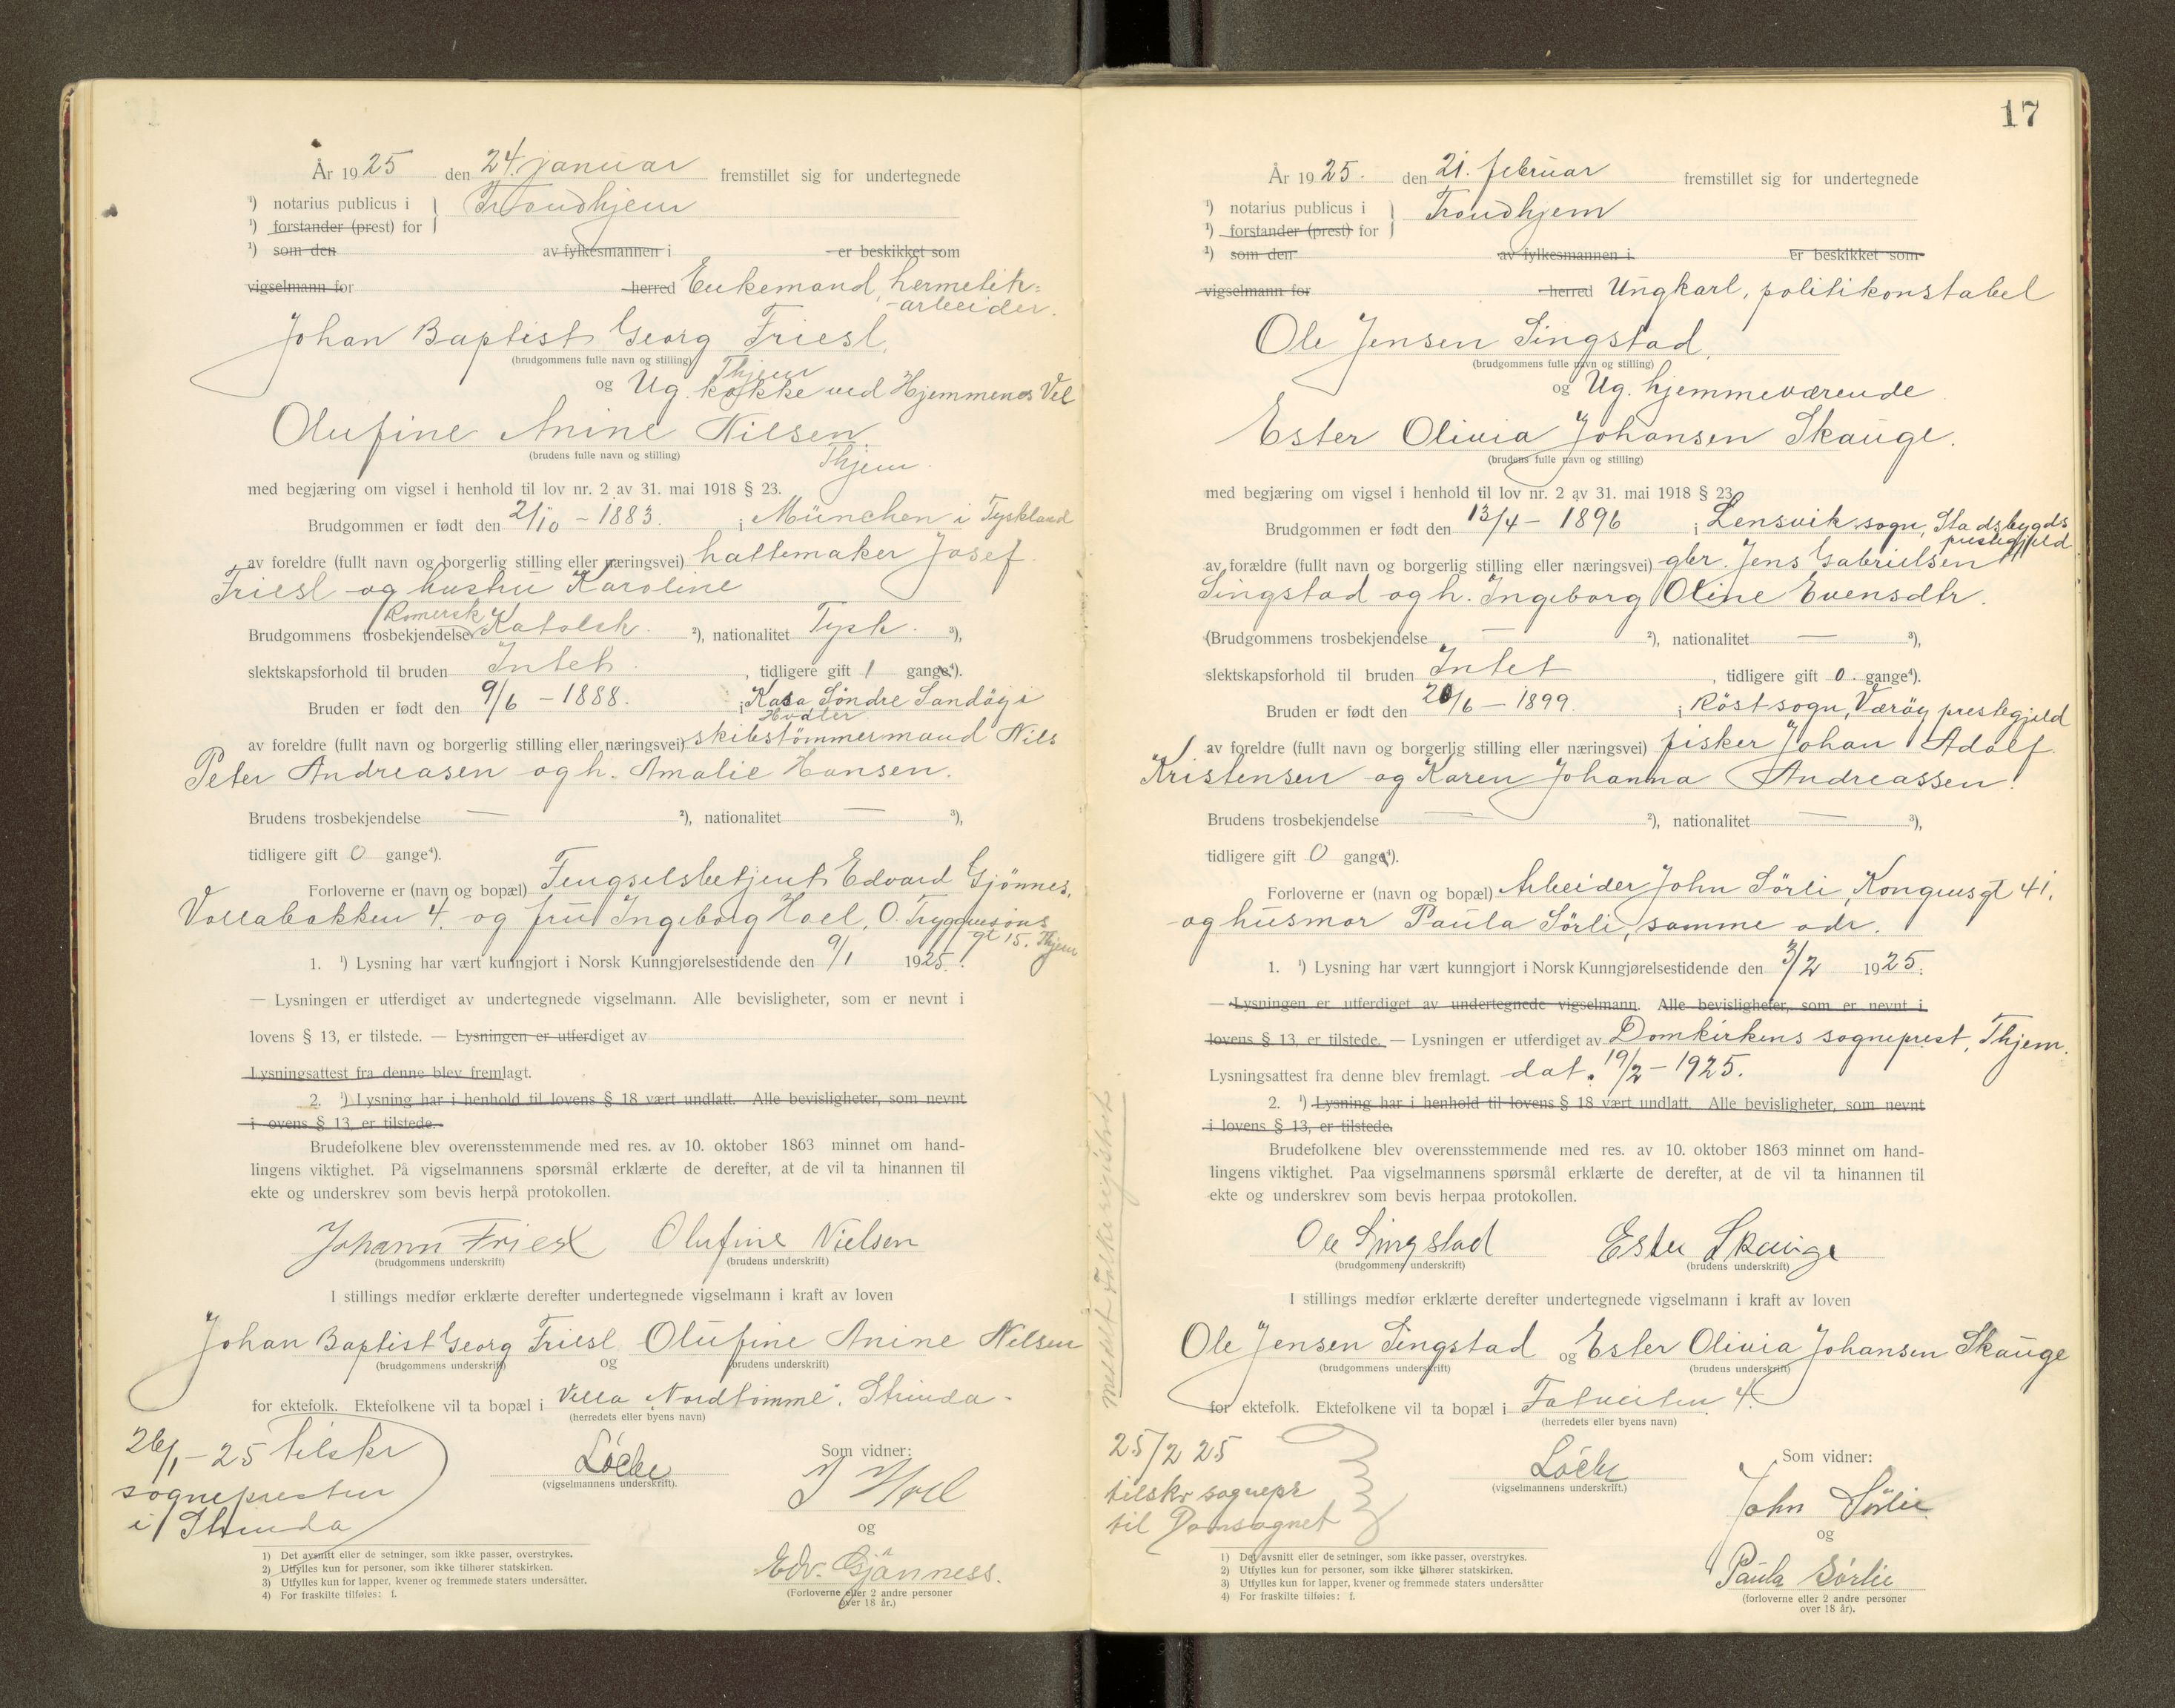 År 1925 den 24. januar fremstillet sig for undertegnede
¹) notarius publicus i } Trondhjem
¹) forstander (prest) for
¹) som den av fylkesmannen i er beskikket som
vigselmann for herred Enkemand, hermetik-
-arbeider.
Johan Baptist Georg Friesl,
(brudgommens fulle navn og stilling)
Thjem
og Ug. kokke ved Hjemmenes Vel
Olufine Anine Nilsen.
(brudens fulle navn og stilling)
Thjem.
med begjæring om vigsel i henhold til lov nr. 2 av 31. mai 1918 § 23.
Brudgommen er født den 2/10 - 1883. i München i Tyskland
av foreldre (fullt navn og borgerlig stilling eller næringsvei) hattemaker Josef
Friesl og hustru Karoline
Romersk
Brudgommens trosbekjendelse Katolsk. ²), nationalitet Tysk. ³),
slektskapsforhold til bruden Intet. , tidligere gift 1 gange⁴).
Bruden er født den 9/6 - 1888. i Kasa Söndre Sandöy i
Hvaler
av foreldre (fullt navn og borgerlig stilling eller næringsvei) skibstömmermand Nils
Peter Andreasen og h. Amalie Hansen.
Brudens trosbekjendelse — ²), nationalitet — ³),
tidligere gift 0 gange⁴).
Forloverne er (navn og bopæl) Fengselsbetjent Edvard Gjönnes,
Vollabakken 4. og fru Ingeborg Hoel, O. Tryggvesöns
gt 15. Thjem
1. ¹) Lysning har vært kunngjort i Norsk Kunngjørelsestidende den 9/1 1925.
— Lysningen er utferdiget av undertegnede vigselmann. Alle bevisligheter, som er nevnt i
lovens § 13, er tilstede. — Lysningen er utferdiget av
Lysningsattest fra denne blev fremlagt.
2. ¹) Lysning har i henhold til lovens § 18 vært undlatt. Alle bevisligheter, som nevnt
i ovens § 13, er tilstede.
Brudefolkene blev overensstemmende med res. av 10. oktober 1863 minnet om hand-
lingens viktighet. På vigselmannens spørsmål erklærte de derefter, at de vil ta hinannen til
ekte og underskrev som bevis herpå protokollen.
Johann Friesl Olufine Nielsen
(brudgommens underskrift) (brudens underskrift)
I stillings medfør erklærte derefter undertegnede vigselmann i kraft av loven
Johan Baptist Georg Friesl og Olufine Anine Nilsen
(brudgommens underskrift) (brudens underskrift)
for ektefolk. Ektefolkene vil ta bopæl i Villa "Nordtömme", Strinda -
(herredets eller byens navn)
26/1-25 tilskr
sognepresten
i Strinda
(vigselmannens underskrift).
Som vidner:
I Hoel
og
Edv. Gjönness.
(Forloverne eller 2 andre personer
over 18 år.)
1) Det avsnitt eller de setninger, som ikke passer, overstrykes.
2) Utfylles kun for personer, som ikke tilhører statskirken.
3) Utfylles kun for lapper, kvener og fremmede staters undersåtter.
4) For fraskilte tilføies: f.
17
År 1925. den 21. februar fremstillet sig for undertegnede
¹) notarius publicus i } Trondhjem
¹) forstander (prest) for
¹) som den av fylkesmannen i er beskikket som
vigselmann for herred Ungkarl, politikonstabel
Ole Jensen Singstad,
(brudgommens fulle navn og stilling)
og Ug. hjemmeværende
Ester Olivia Johansen Skauge.
(brudens fulle navn og stilling)
med begjæring om vigsel i henhold til lov nr. 2 av 31. mai 1918 § 23
Brudgommen er født den 13/4 - 1896 i Lensvik sogn, Stadsbygds
prestegjeld
av forældre (fullt navn og borgerlig stilling eller næringsvei) gbr. Jens Gabrielsen
Singstad og h. Ingeborg Oline Evensdtr.
(Brudgommens trosbekjendelse — ²), nationalitet — ³),
slektskapsforhold til bruden Intet , tidligere gift 0. gange⁴).
Bruden er født den 20/6 - 1899. i Röst sogn, Væröy prestegjeld
av foreldre (fullt navn og borgerlig stilling eller næringsvei) fisker Johan Adolf
Kristensen og Karen Johanna Andreassen.
Brudens trosbekjendelse — ²), nationalitet — ³),
tidligere gift 0 gange⁴).
Forloverne er (navn og bopæl) Arbeider John Sörli, Kongensgt 41.
og husmor Paula Sörli, samme adr.
1. ¹) Lysning har vært kunngjort i Norsk Kunngjørelsestidende den 3/2 1925.
— Lysningen er utferdiget av undertegnede vigselmann. Alle bevisligheter, som er nevnt i
lovens § 13, er tilstede. — Lysningen er utferdiget av Domkirkens sogneprest, Thjem.
Lysningsattest fra denne blev fremlagt. dat. 19/2 - 1925.
2. ¹) Lysning har i henhold til lovens § 18 vært undlatt. Alle bevisligheter, som nevnt
i lovens § 13, er tilstede.
Brudefolkene blev overensstemmende med res. av 10. oktober 1863 minnet om hand-
lingens viktighet. Paa vigselmannens spørsmål erklærte de derefter, at de vil ta hinannen til
ekte og underskrev som bevis herpaa protokollen.
Ole Singstad Ester Skauge
(brudgommens underskrift) (brudens underskrift)
I stillings medfør erklærte derefter undertegnede vigselmann i kraft av loven
Ole Jensen Singstad og Ester Olivia Johansen Skauge
(brudgommens underskrift) (brudens underskrift)
for ektefolk. Ektefolkene vil ta bopæl i 4.
(herredets eller byens navn)
meldt Folkeregistret.
25/2 25
tilskr sognepr
til Domsognet
(vigselmannens underskrift.)
Som vidner:
John Sörlie
og
Paula Sörlie
(forloverne eller 2 andre personer
over 18 år).
1) Det avsnitt eller de setninger, som ikke passer, overstrykes.
2) Utfylles kun for personer, som ikke tilhører statskirken.
3) Utfylles kun for lapper, kvener og fremmede staters undersåtter
4) For fraskilte tilføies: f.